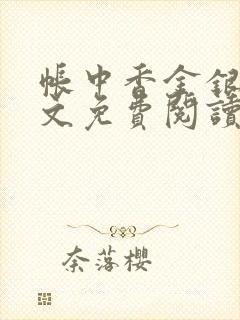 帳中香金銀
文免費閱讀
奈落櫻